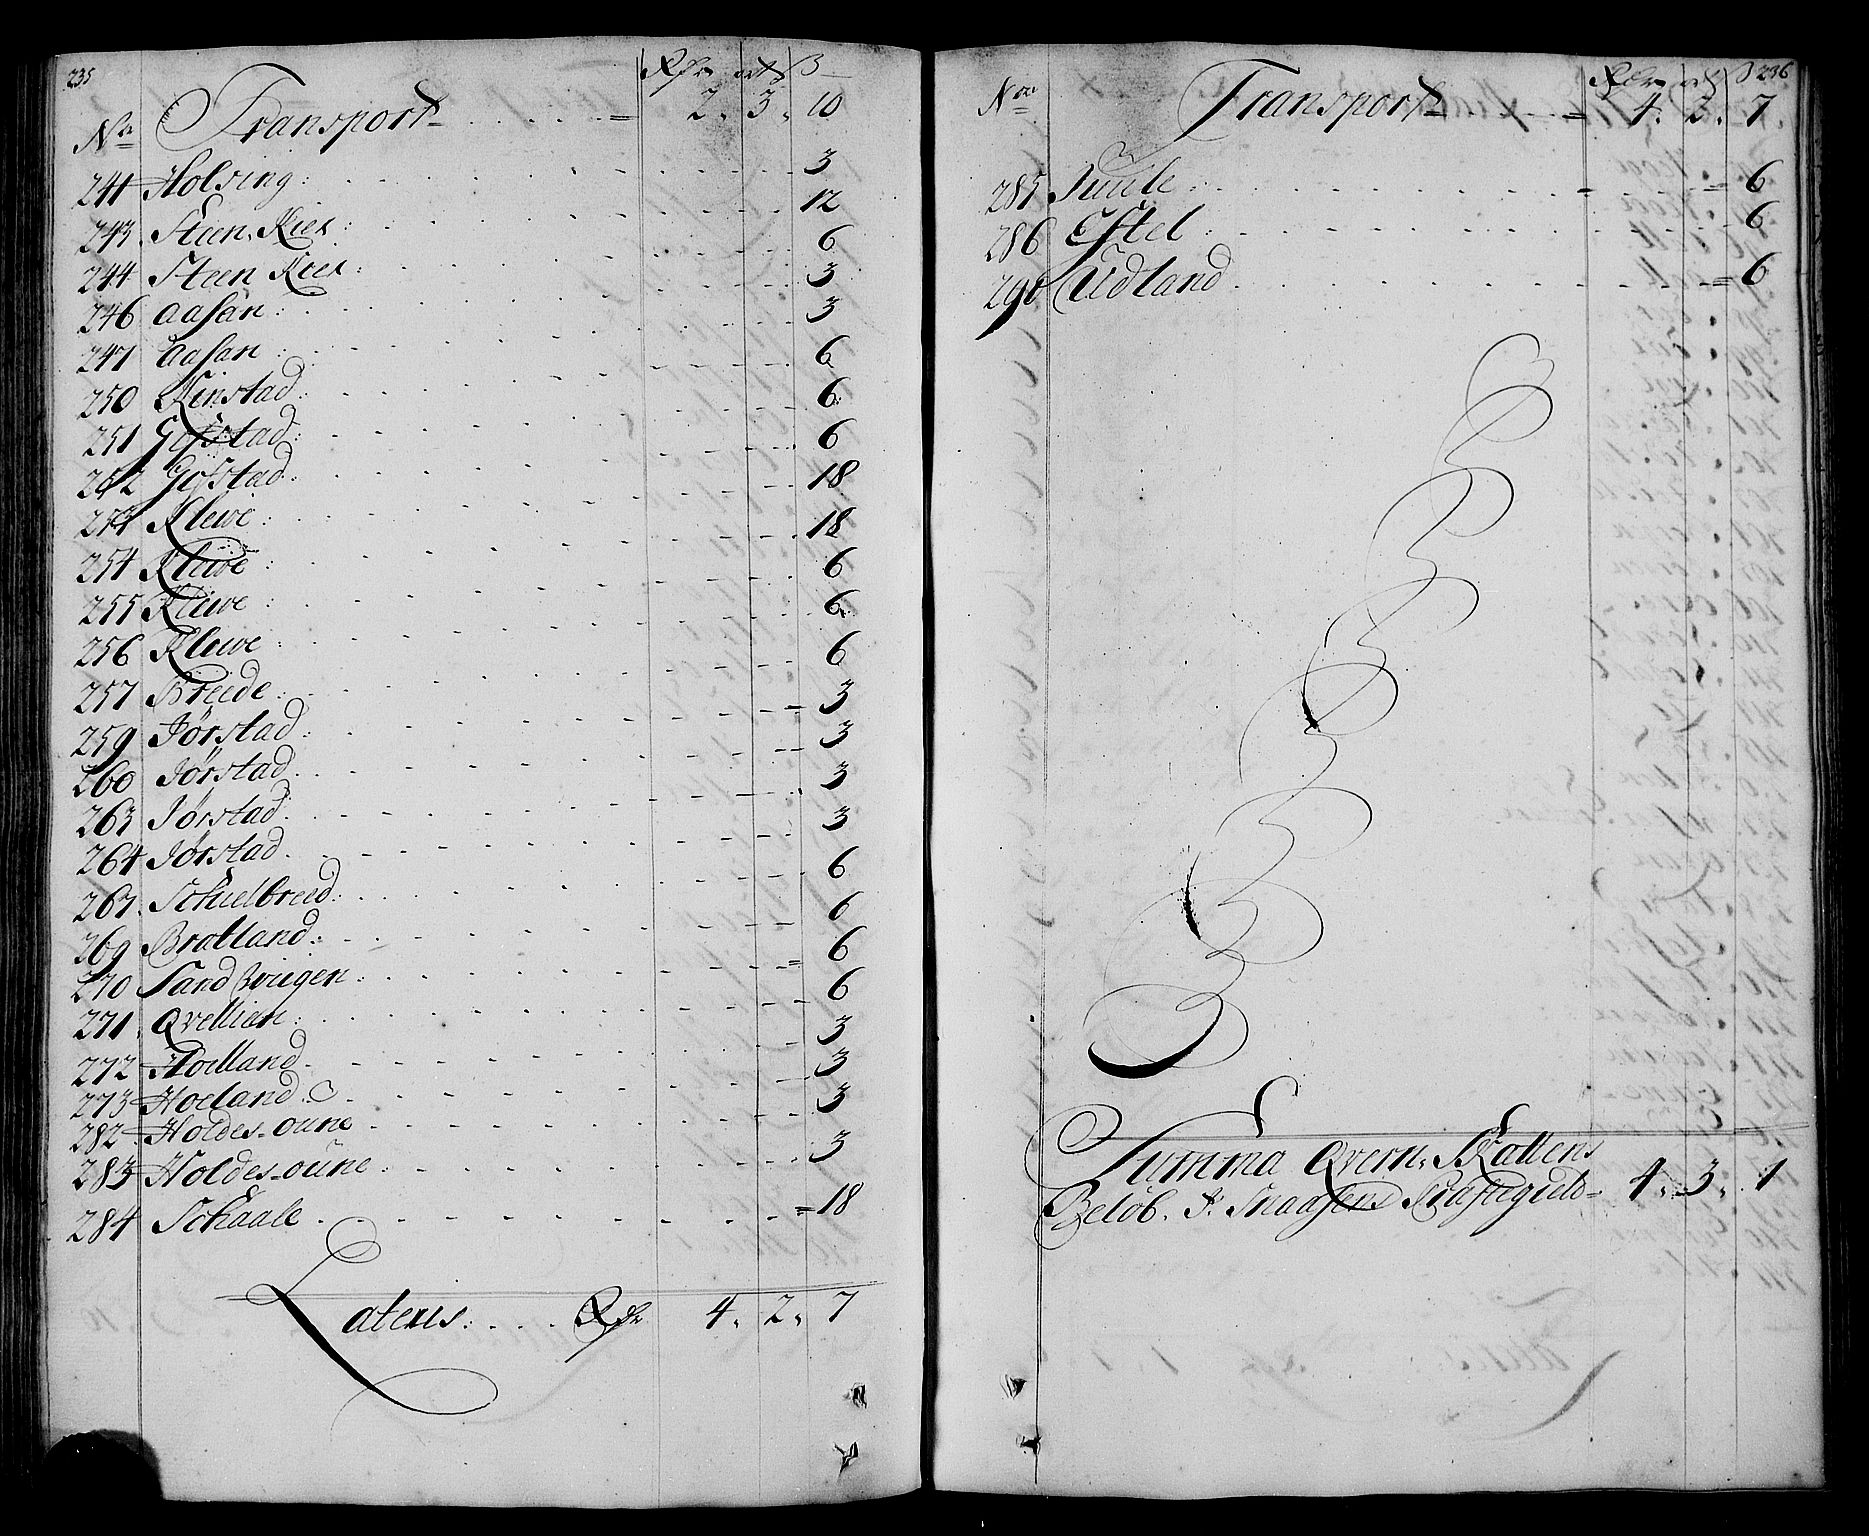 235
Rdr ort ß
No Transport 2. 3. 10
241 Holsing 3
243 Steen Kier 12
244 Steen Kier 6
246 Aasan 3
247 Aasan 3
250 Kinstad 6
251 Gifstad 6
252 Gifstad 6
Klewe 18
254 Klewe 18
255 Klewe 6
256 Klewe 6
257 Breede 6
259 Jørstad 3
260 Jørstad 3
263 Jørstad 3
264 Jørstad 3
267 Schielbreed 6
269 Bratland 6
270 Sandbriigen 6
271 Qvellian 6
272 Hoelland 3
273 Hoeland 3
282 Holdes-oune 3
283 Holdes-oüne 3
284 Schaale 18
Lateris Rdr 4. 2. 7
236
Rdr ort ß
No Transport 4. 2. 7
285 Juule 6
286 Estel 6
290 Udland 6
Summa Qvern Skattens
Beløb. J. Snaasens Præstegield 4. 3. 1